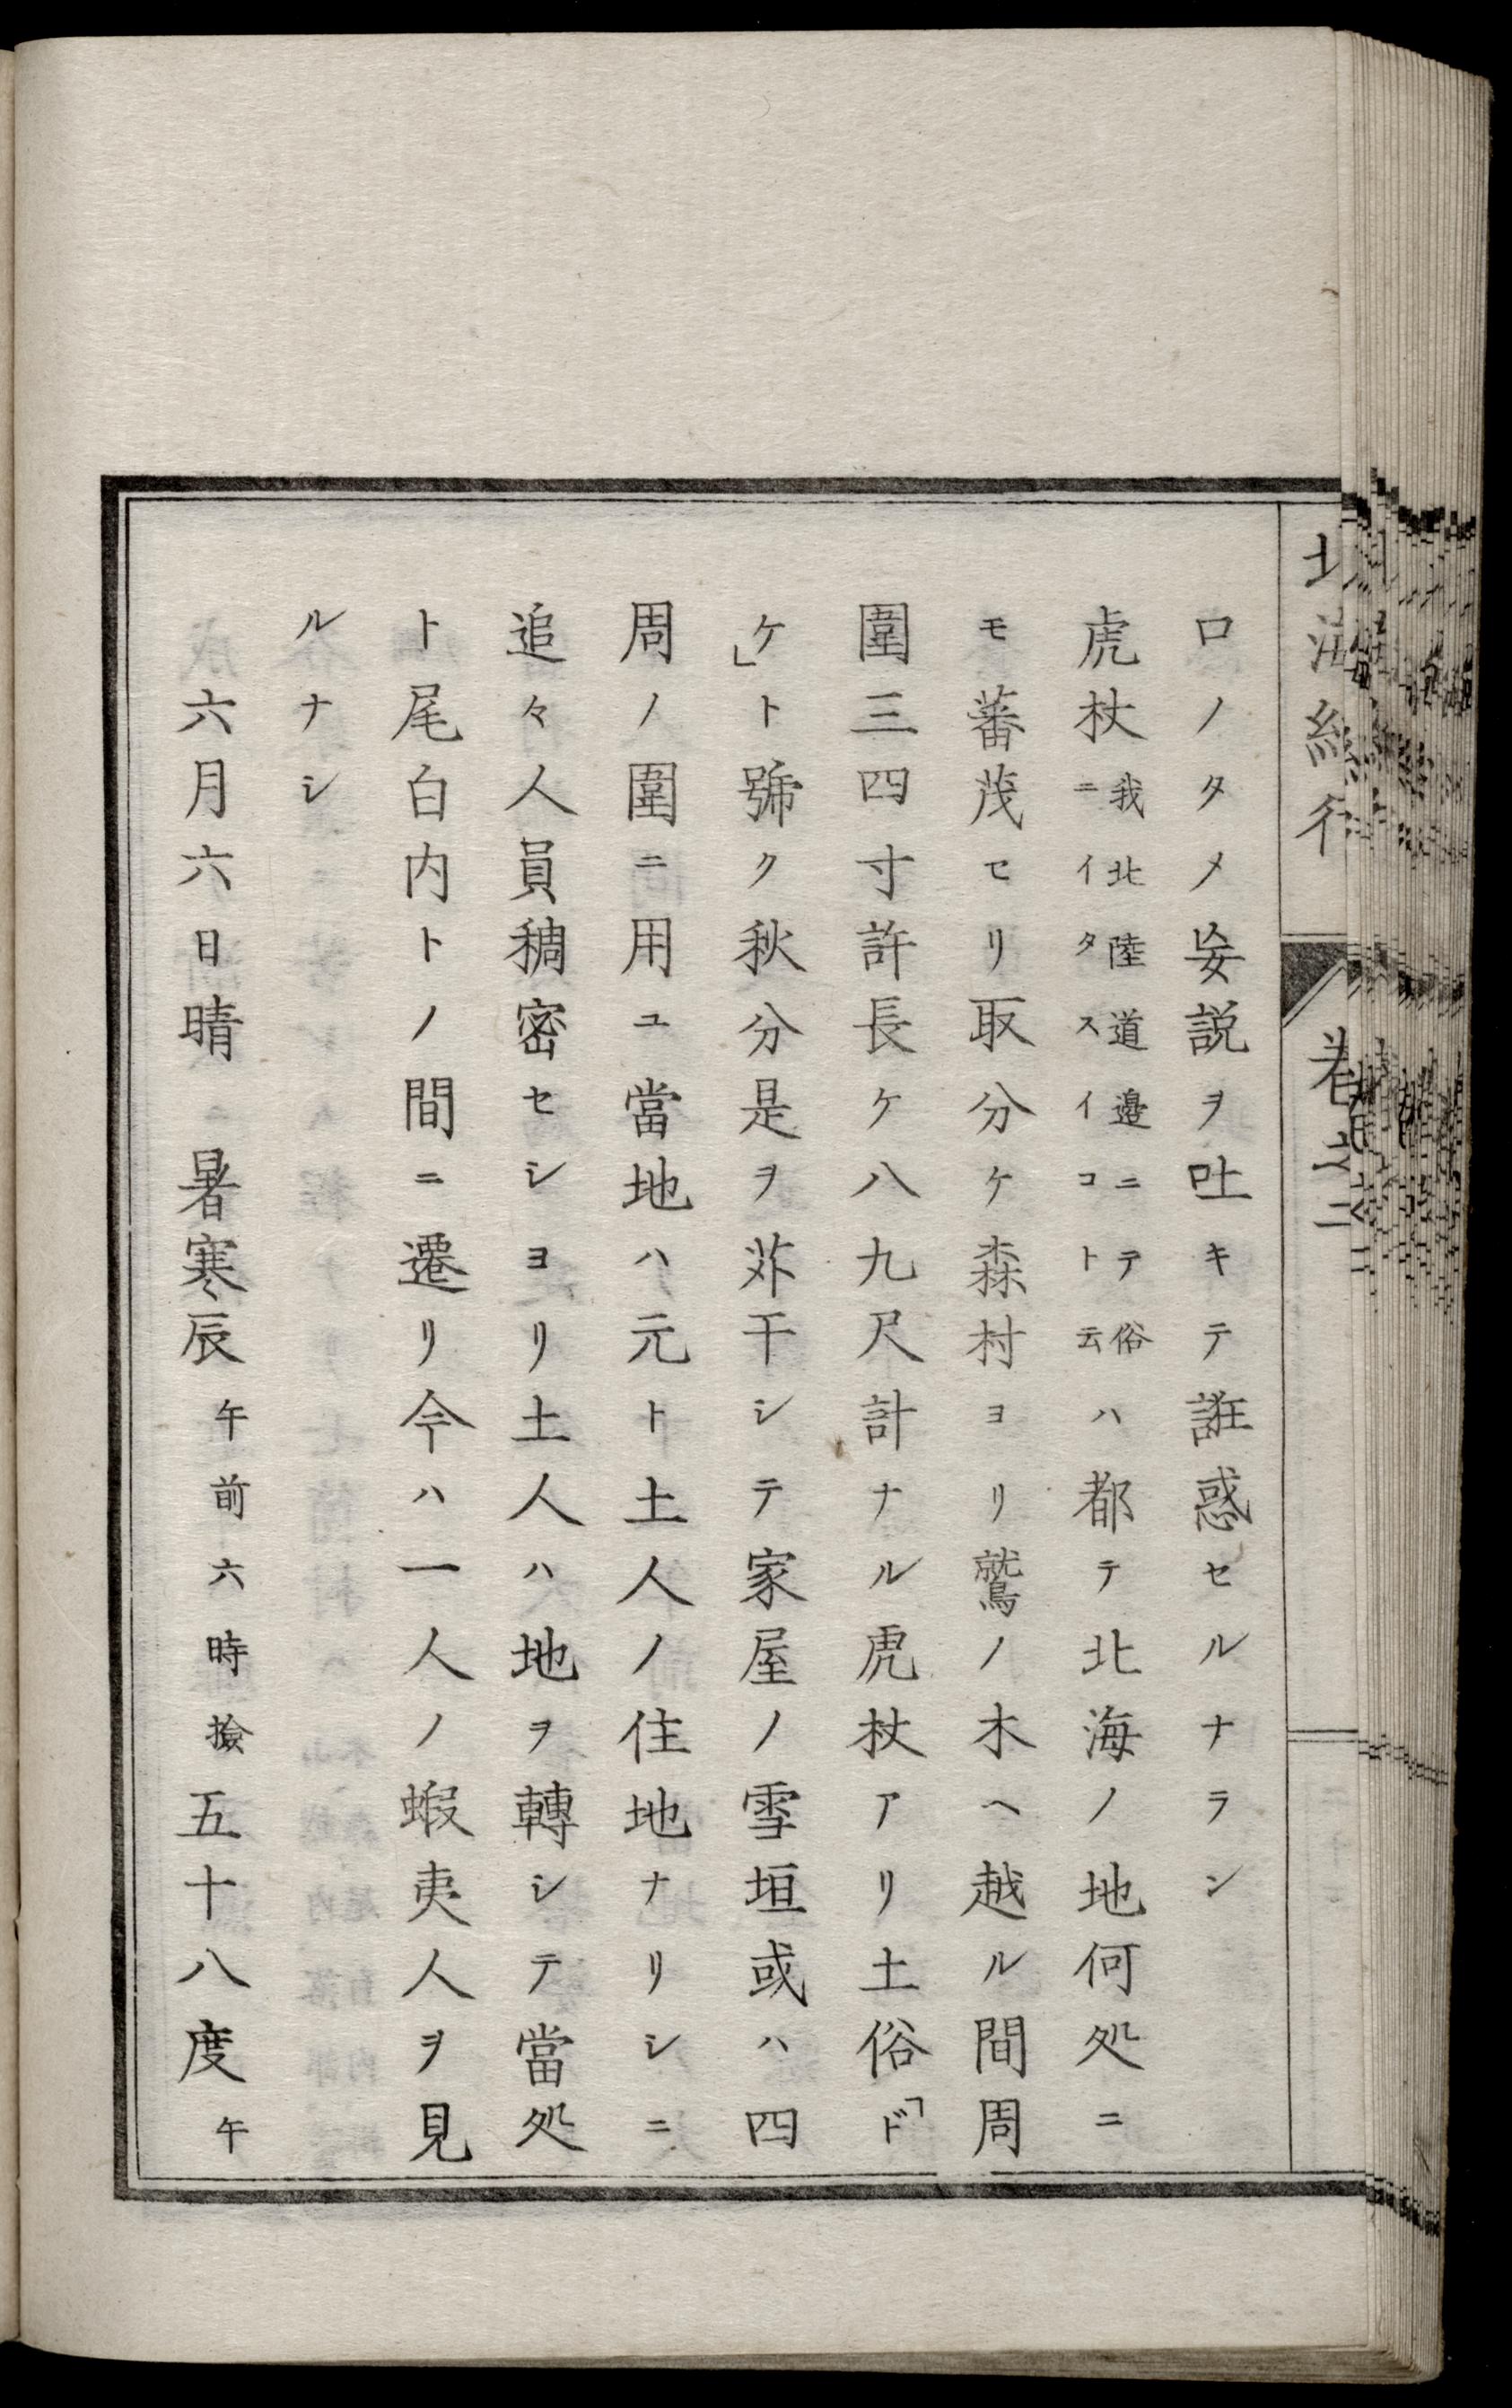 北海紀行
卷之二
口ノタメ妄説ヲ吐キテ誑惑セルナラン
虎杖我北陸道邉ニテ俗ニイタスイコト云ハ都テ北海ノ地何処ニ
モ蕃茂セリ取分ケ森村ヨリ鷲ノ木ヘ越ル間周
圍三四寸許長ケ八九尺計ナル虎杖アリ土俗「ド
ケ」ト號ク秋分是ヲ苅干シテ家屋ノ雪垣或ハ四
周ノ圍ニ用ユ當地ハ元ト土人ノ住地ナリシニ
追々人員稠密セシヨリ土人ハ地ヲ轉シテ當処
ト尾白内トノ間ニ遷リ今ハ一人ノ蝦夷人ヲ見
ルナシ
六月六日晴　暑寒辰午前六時撿五十八度午